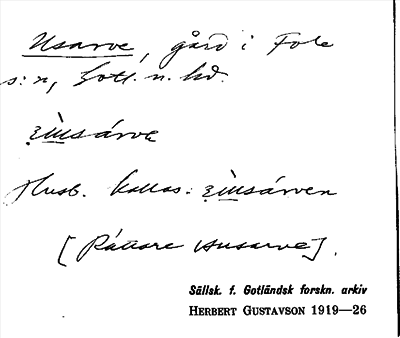 Usarve, gård i Fole
s:n, Gotl. n. hd.
ɛ̀ùsárve
Husb. kallas: ɛ̀ùsárven
[Rättare Husarve].
Sällsk. f. Gotländsk forskn. arkiv
HERBERT GUSTAVSON 1919—26